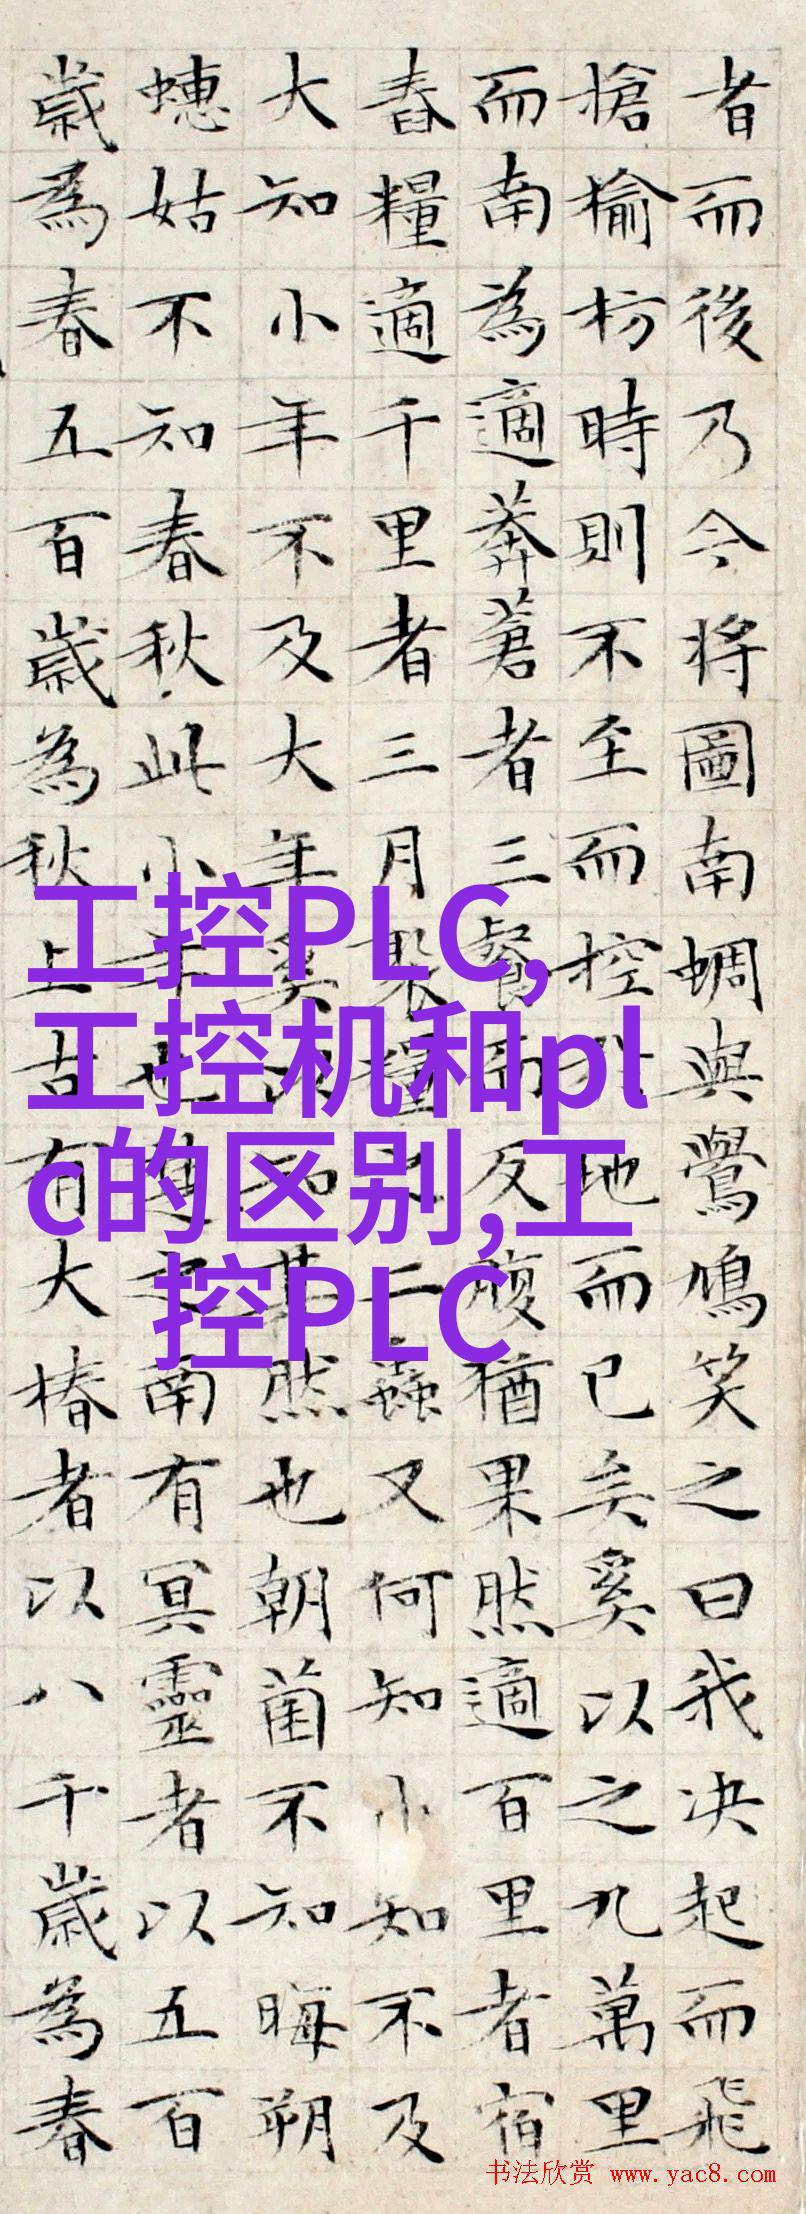 者而後乃今将圖南蜩與鷽鳩笑之曰我决起而飛
搶榆枋時則不至而控於地而已矣奚以之九萬里
而南為適莽蒼者三餐而反腹猶果然適百里者宿
舂糧適千里者三月聚糧之二蟲又何知小知不及
大知小年不及大年奚以知其然也朝菌不知晦朔
蟪姑不知春秋此小年也楚之南有冥靈者以五百
歲為春五百歲為秋上古有大椿者以八千歲為春
工控PLC,
工控机和pl
c的区别,工
控PLC
书法欣赏 www.yac8.com